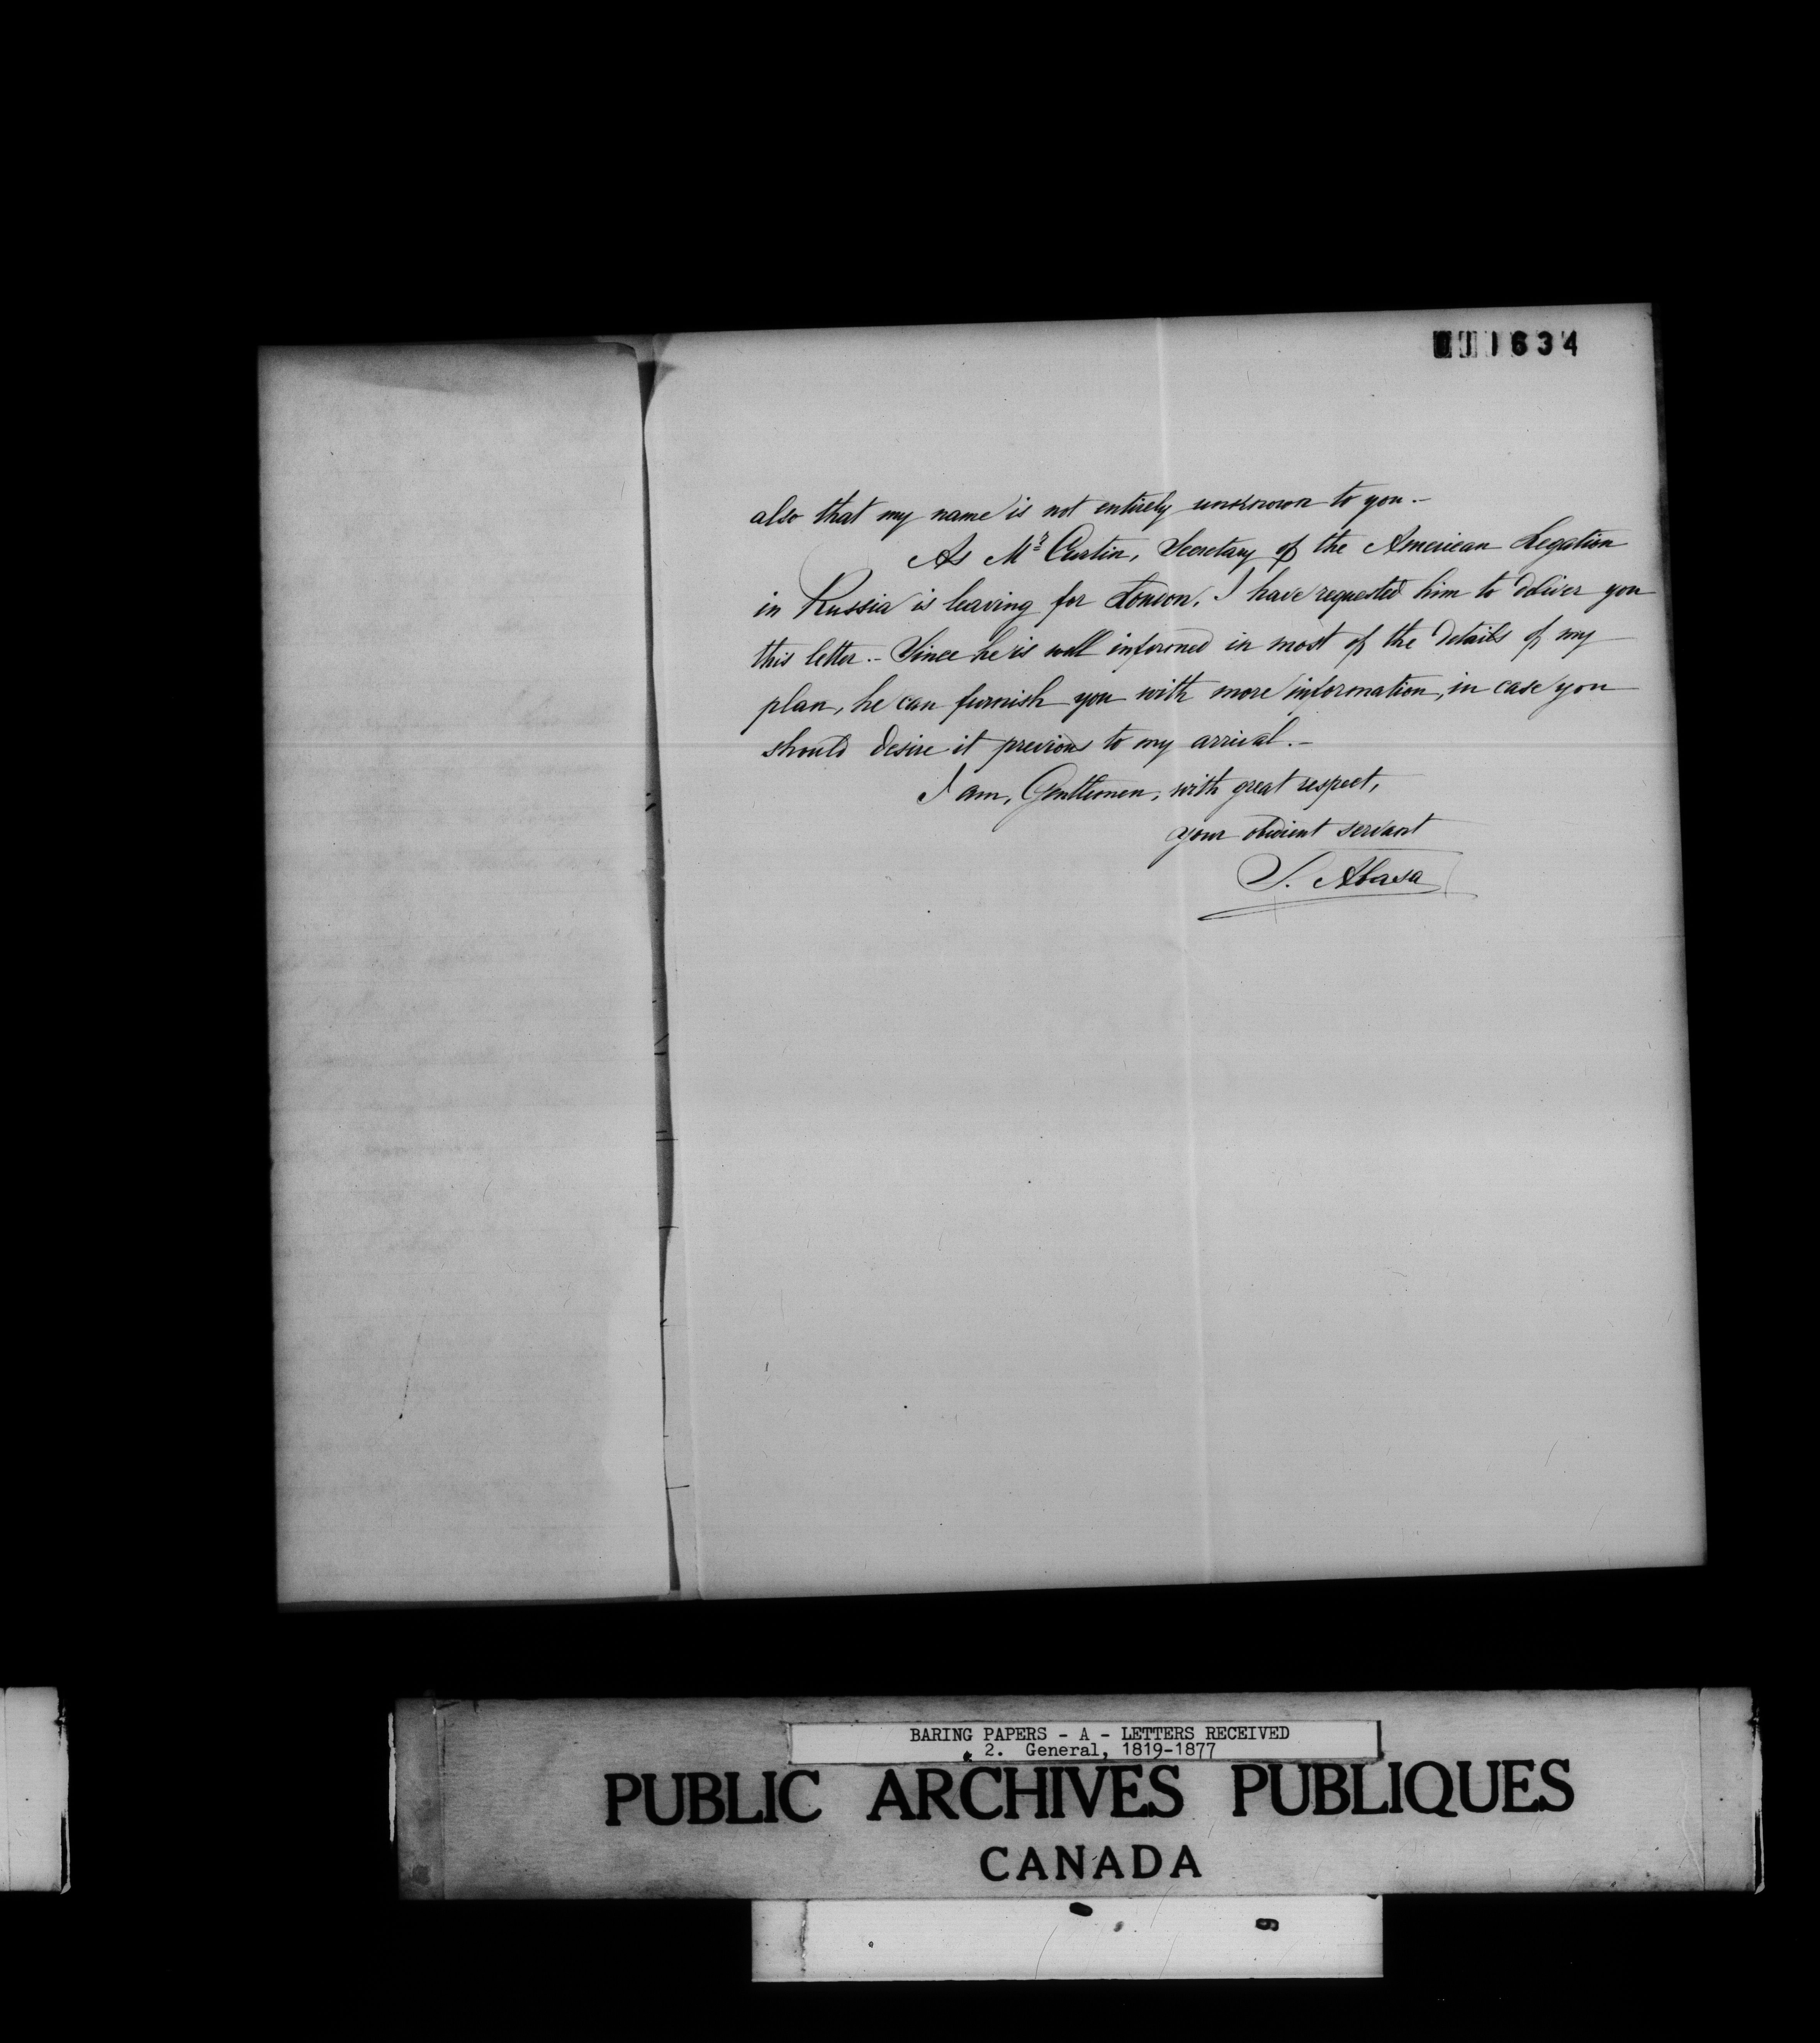 111634
also that my name is not entirely unknown to you.-
As Mr Curtin, Secretary of the American Legation
in Russia is leaving for London, I have requested him to deliver you
this letter.- Since he is well informed in most of the details of my
plan, he can furnish you with more information, in case you
should desire it previous to my arrival.-
I am, Gentlemen, with great respect,
your obedient servant
S. Abasa
BARING PAPERS - A - LETTERS RECEIVED
2. General, 1819-1877
PUBLIC ARCHIVES PUBLIQUES
CANADA